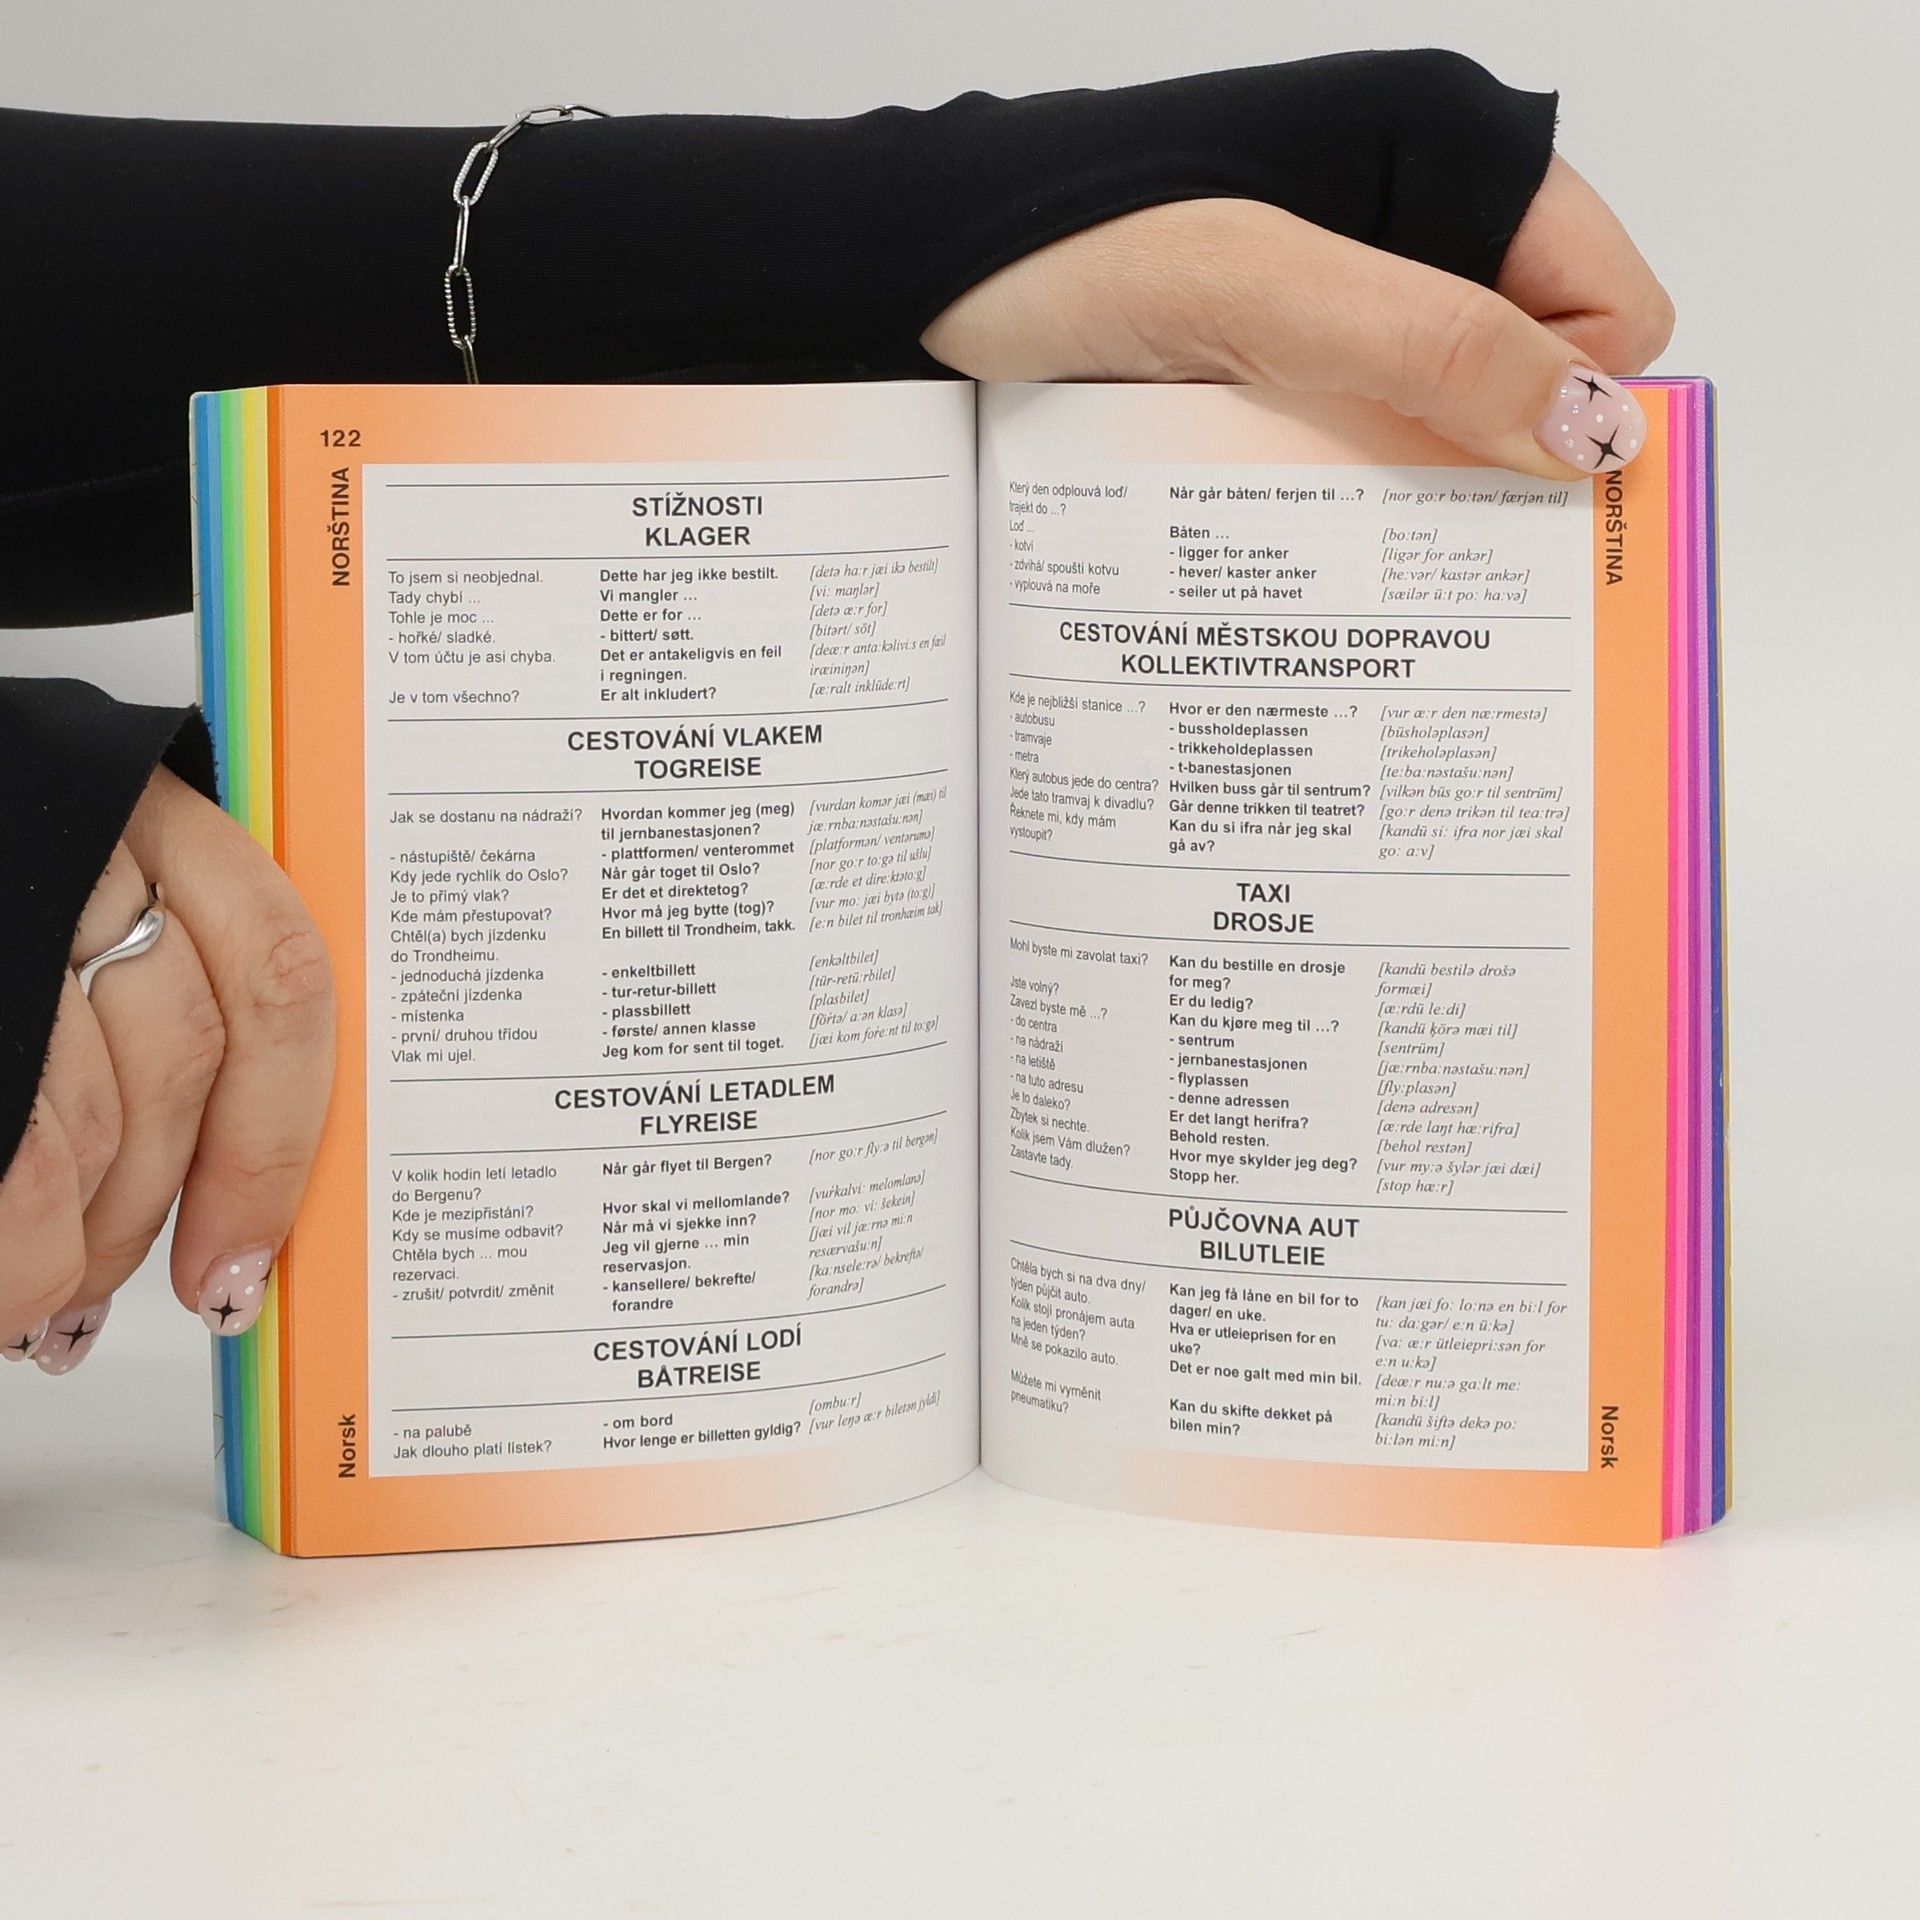 122
NORŠTINA
STÍŽNOSTI
KLAGER
To jsem si neobjednal. Dette har jeg ikke bestilt. [detə ha:r jæi ikə bestilt]
Tady chybí ... Vi mangler ... [vi: maŋlər]
Tohle je moc ... Dette er for ... [detə æ:r for]
- hořké/ sladké. - bittert/ søtt. [bitərt/ söt]
V tom účtu je asi chyba. Det er antakeligvis en feil [deæ:r anta:kəlivi:s en fæil
i regningen. iræiniŋən]
Je v tom všechno? Er alt inkludert? [æ:ralt inklüde:rt]
CESTOVÁNÍ VLAKEM
TOGREISE
Jak se dostanu na nádraží? Hvordan kommer jeg (meg) [vurdan komər jæi (mæi) til
til jernbanestasjonen? jæ:rnba:nəstašu:nən]
- nástupiště/ čekárna - plattformen/ venterommet [platformən/ ventərumə]
Kdy jede rychlík do Oslo? Når går toget til Oslo? [nor go:r to:gə til ušlu]
Je to přímý vlak? Er det et direktetog? [æ:rde et dire:ktəto:g]
Kde mám přestupovat? Hvor må jeg bytte (tog)? [vur mo: jæi bytə (to:g)]
Chtěl(a) bych jízdenku En billett til Trondheim, takk. [e:n bilet til tronhæim tak]
do Trondheimu.
- jednoduchá jízdenka - enkeltbillett [enkəltbilet]
- zpáteční jízdenka - tur-retur-billett [tür-retü:rbilet]
- místenka - plassbillett [plasbilet]
- první/ druhou třídou - første/ annen klasse [föřtə/ a:ən klasə]
Vlak mi ujel. Jeg kom for sent til toget. [jæi kom foře:nt til to:gə]
CESTOVÁNÍ LETADLEM
FLYREISE
V kolik hodin letí letadlo Når går flyet til Bergen? [nor go:r fly:ə til bergən]
do Bergenu?
Kde je mezipřistání? Hvor skal vi mellomlande? [vuřkalvi: melomlanə]
Kdy se musíme odbavit? Når må vi sjekke inn? [nor mo: vi: šekein]
Chtěla bych ... mou Jeg vil gjerne ... min [jæi vil jæ:rnə mi:n
rezervaci. reservasjon. resærvašu:n]
- zrušit/ potvrdit/ změnit - kansellere/ bekrefte/ [ka:nsele:rə/ bekreftə/
forandre forandrə]
CESTOVÁNÍ LODÍ
BÅTREISE
- na palubě - om bord [ombu:r]
Jak dlouho platí lístek? Hvor lenge er billetten gyldig? [vur leŋə æ:r biletən jyldi]
Norsk
NORŠTINA
Který den odplouvá loď/ Når går båten/ ferjen til ...? [nor go:r bo:tən/ færjən til]
trajekt do ...?
Loď ... Båten ... [bo:tən]
- kotví - ligger for anker [ligər for ankər]
- zdvihá/ spouští kotvu - hever/ kaster anker [he:vər/ kastər ankər]
- vyplouvá na moře - seiler ut på havet [sæilər ü:t po: ha:və]
CESTOVÁNÍ MĚSTSKOU DOPRAVOU
KOLLEKTIVTRANSPORT
Kde je nejbližší stanice ...? Hvor er den nærmeste ...? [vur æ:r den næ:rmestə]
- autobusu - bussholdeplassen [büsholəplasən]
- tramvaje - trikkeholdeplassen [trikeholəplasən]
- metra - t-banestasjonen [te:ba:nəstašu:nən]
Který autobus jede do centra? Hvilken buss går til sentrum? [vilkən büs go:r til sentrüm]
Jede tato tramvaj k divadlu? Går denne trikken til teatret? [go:r denə trikən til tea:trə]
Řeknete mi, kdy mám Kan du si ifra når jeg skal [kandü si: ifra nor jæi skal
vystoupit? gå av? go: a:v]
TAXI
DROSJE
Mohl byste mi zavolat taxi? Kan du bestille en drosje [kandü bestilə drošə
for meg? formæi]
Jste volný? Er du ledig? [æ:rdü le:di]
Zavezl byste mě ...? Kan du kjøre meg til ...? [kandü ķörə mæi til]
- do centra - sentrum [sentrüm]
- na nádraží - jernbanestasjonen [jæ:rnba:nəstašu:nən]
- na letiště - flyplassen [fly:plasən]
- na tuto adresu - denne adressen [denə adresən]
Je to daleko? Er det langt herifra? [æ:rde laŋt hæ:rifra]
Zbytek si nechte. Behold resten. [behol restən]
Kolik jsem Vám dlužen? Hvor mye skylder jeg deg? [vur my:ə šylər jæi dæi]
Zastavte tady. Stopp her. [stop hæ:r]
PŮJČOVNA AUT
BILUTLEIE
Chtěla bych si na dva dny/ Kan jeg få låne en bil for to [kan jæi fo: lo:nə en bi:l for
týden půjčit auto. dager/ en uke. tu: da:gər/ e:n ü:kə]
Kolik stojí pronájem auta Hva er utleieprisen for en [va: æ:r ütleiepri:sən for
na jeden týden? uke? e:n u:kə]
Mně se pokazilo auto. Det er noe galt med min bil. [deæ:r nu:ə ga:lt me:
mi:n bi:l]
Můžete mi vyměnit Kan du skifte dekket på [kandü šiftə dekə po:
pneumatiku? bilen min? bi:lən mi:n]
Norsk